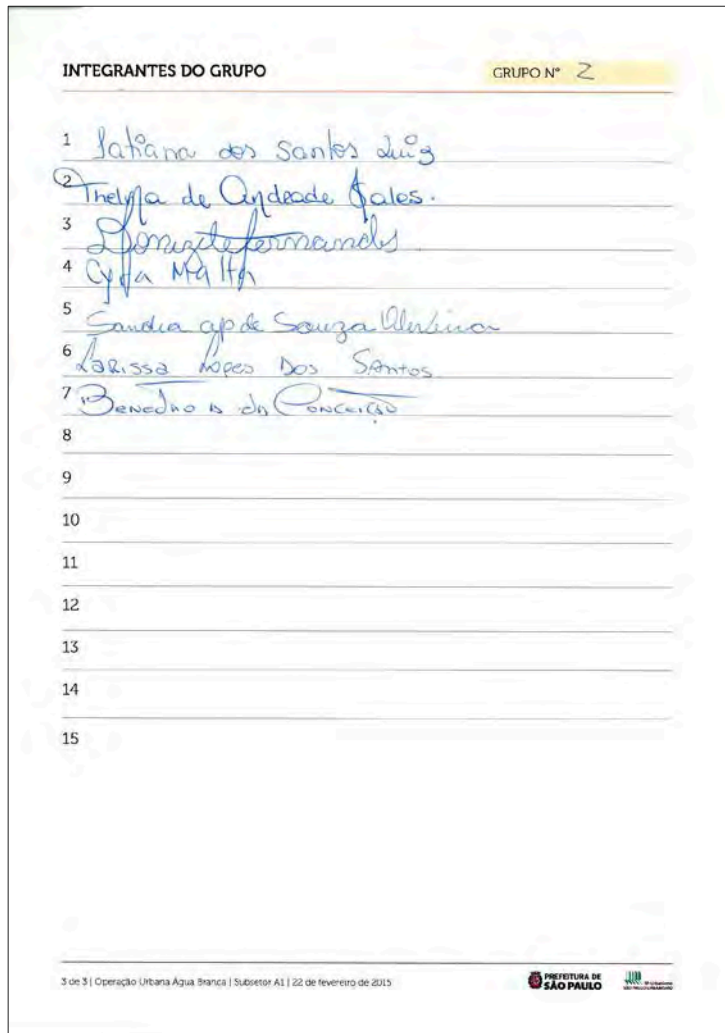 INTEGRANTES DO GRUPO
GRUPO Nº 2
1 Tatiana dos Santos Luiz
2 Thelma de Andrade Sales.
3 Donizete Fernandes
4 Cyra Malta
5 Sandra ap de Souza
6 Larissa Lopes Dos Santos
7 Benedito da Conceição
8
9
10
11
12
13
14
15
3 de 3 | Operação Urbana Água Branca | Subsetor A1 | 22 de fevereiro de 2015
PREFEITURA DE
SÃO PAULO